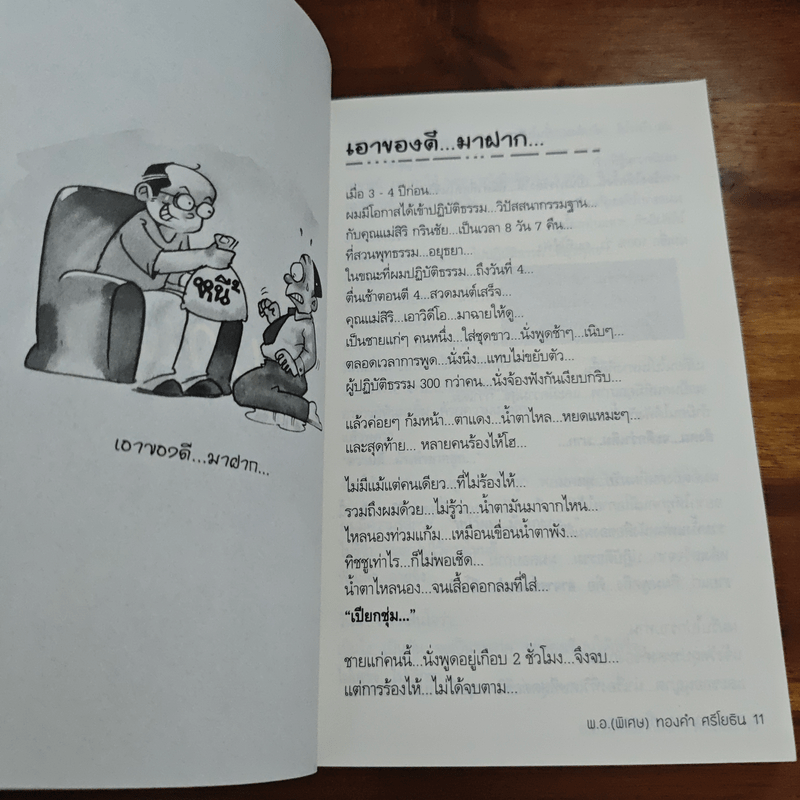 หนี้
เอาของดี...มาฝาก...
เอาของดี...มาฝาก...
เมื่อ 3 - 4 ปีก่อน...
ผมมีโอกาสได้เข้าปฏิบัติธรรม...วิปัสสนากรรมฐาน...
กับคุณแม่สิริ กรินชัย...เป็นเวลา 8 วัน 7 คืน...
ที่สวนพุทธธรรม...อยุธยา...
ในขณะที่ผมปฏิบัติธรรม...ถึงวันที่ 4...
ตื่นเช้าตอนตี 4...สวดมนต์เสร็จ...
คุณแม่สิริ...เอาวิดีโอ...มาฉายให้ดู...
เป็นชายแก่ๆ คนหนึ่ง...ใส่ชุดขาว...นั่งพูดช้าๆ...เนิบๆ...
ตลอดเวลาการพูด...นั่งนิ่ง...แทบไม่ขยับตัว...
ผู้ปฏิบัติธรรม 300 กว่าคน...นั่งจ้องฟังกันเงียบกริบ...
แล้วค่อยๆ ก้มหน้า...ตาแดง...น้ำตาไหล...หยดแหมะๆ...
และสุดท้าย... หลายคนร้องไห้โฮ...
ไม่มีแม้แต่คนเดียว...ที่ไม่ร้องไห้...
รวมถึงผมด้วย...ไม่รู้ว่า...น้ำตามันมาจากไหน...
ไหลนองท่วมแก้ม...เหมือนเขื่อนน้ำตาพัง...
ทิชชูเท่าไร...ก็ไม่พอเช็ด...
น้ำตาไหลนอง...จนเสื้อคอกลมที่ใส่...
“เปียกชุ่ม...”
ชายแก่คนนี้...นั่งพูดอยู่เกือบ 2 ชั่วโมง...จึงจบ...
แต่การร้องไห้...ไม่ได้จบตาม...
พ.อ.(พิเศษ) ทองคำ ศรีโยธิน 11